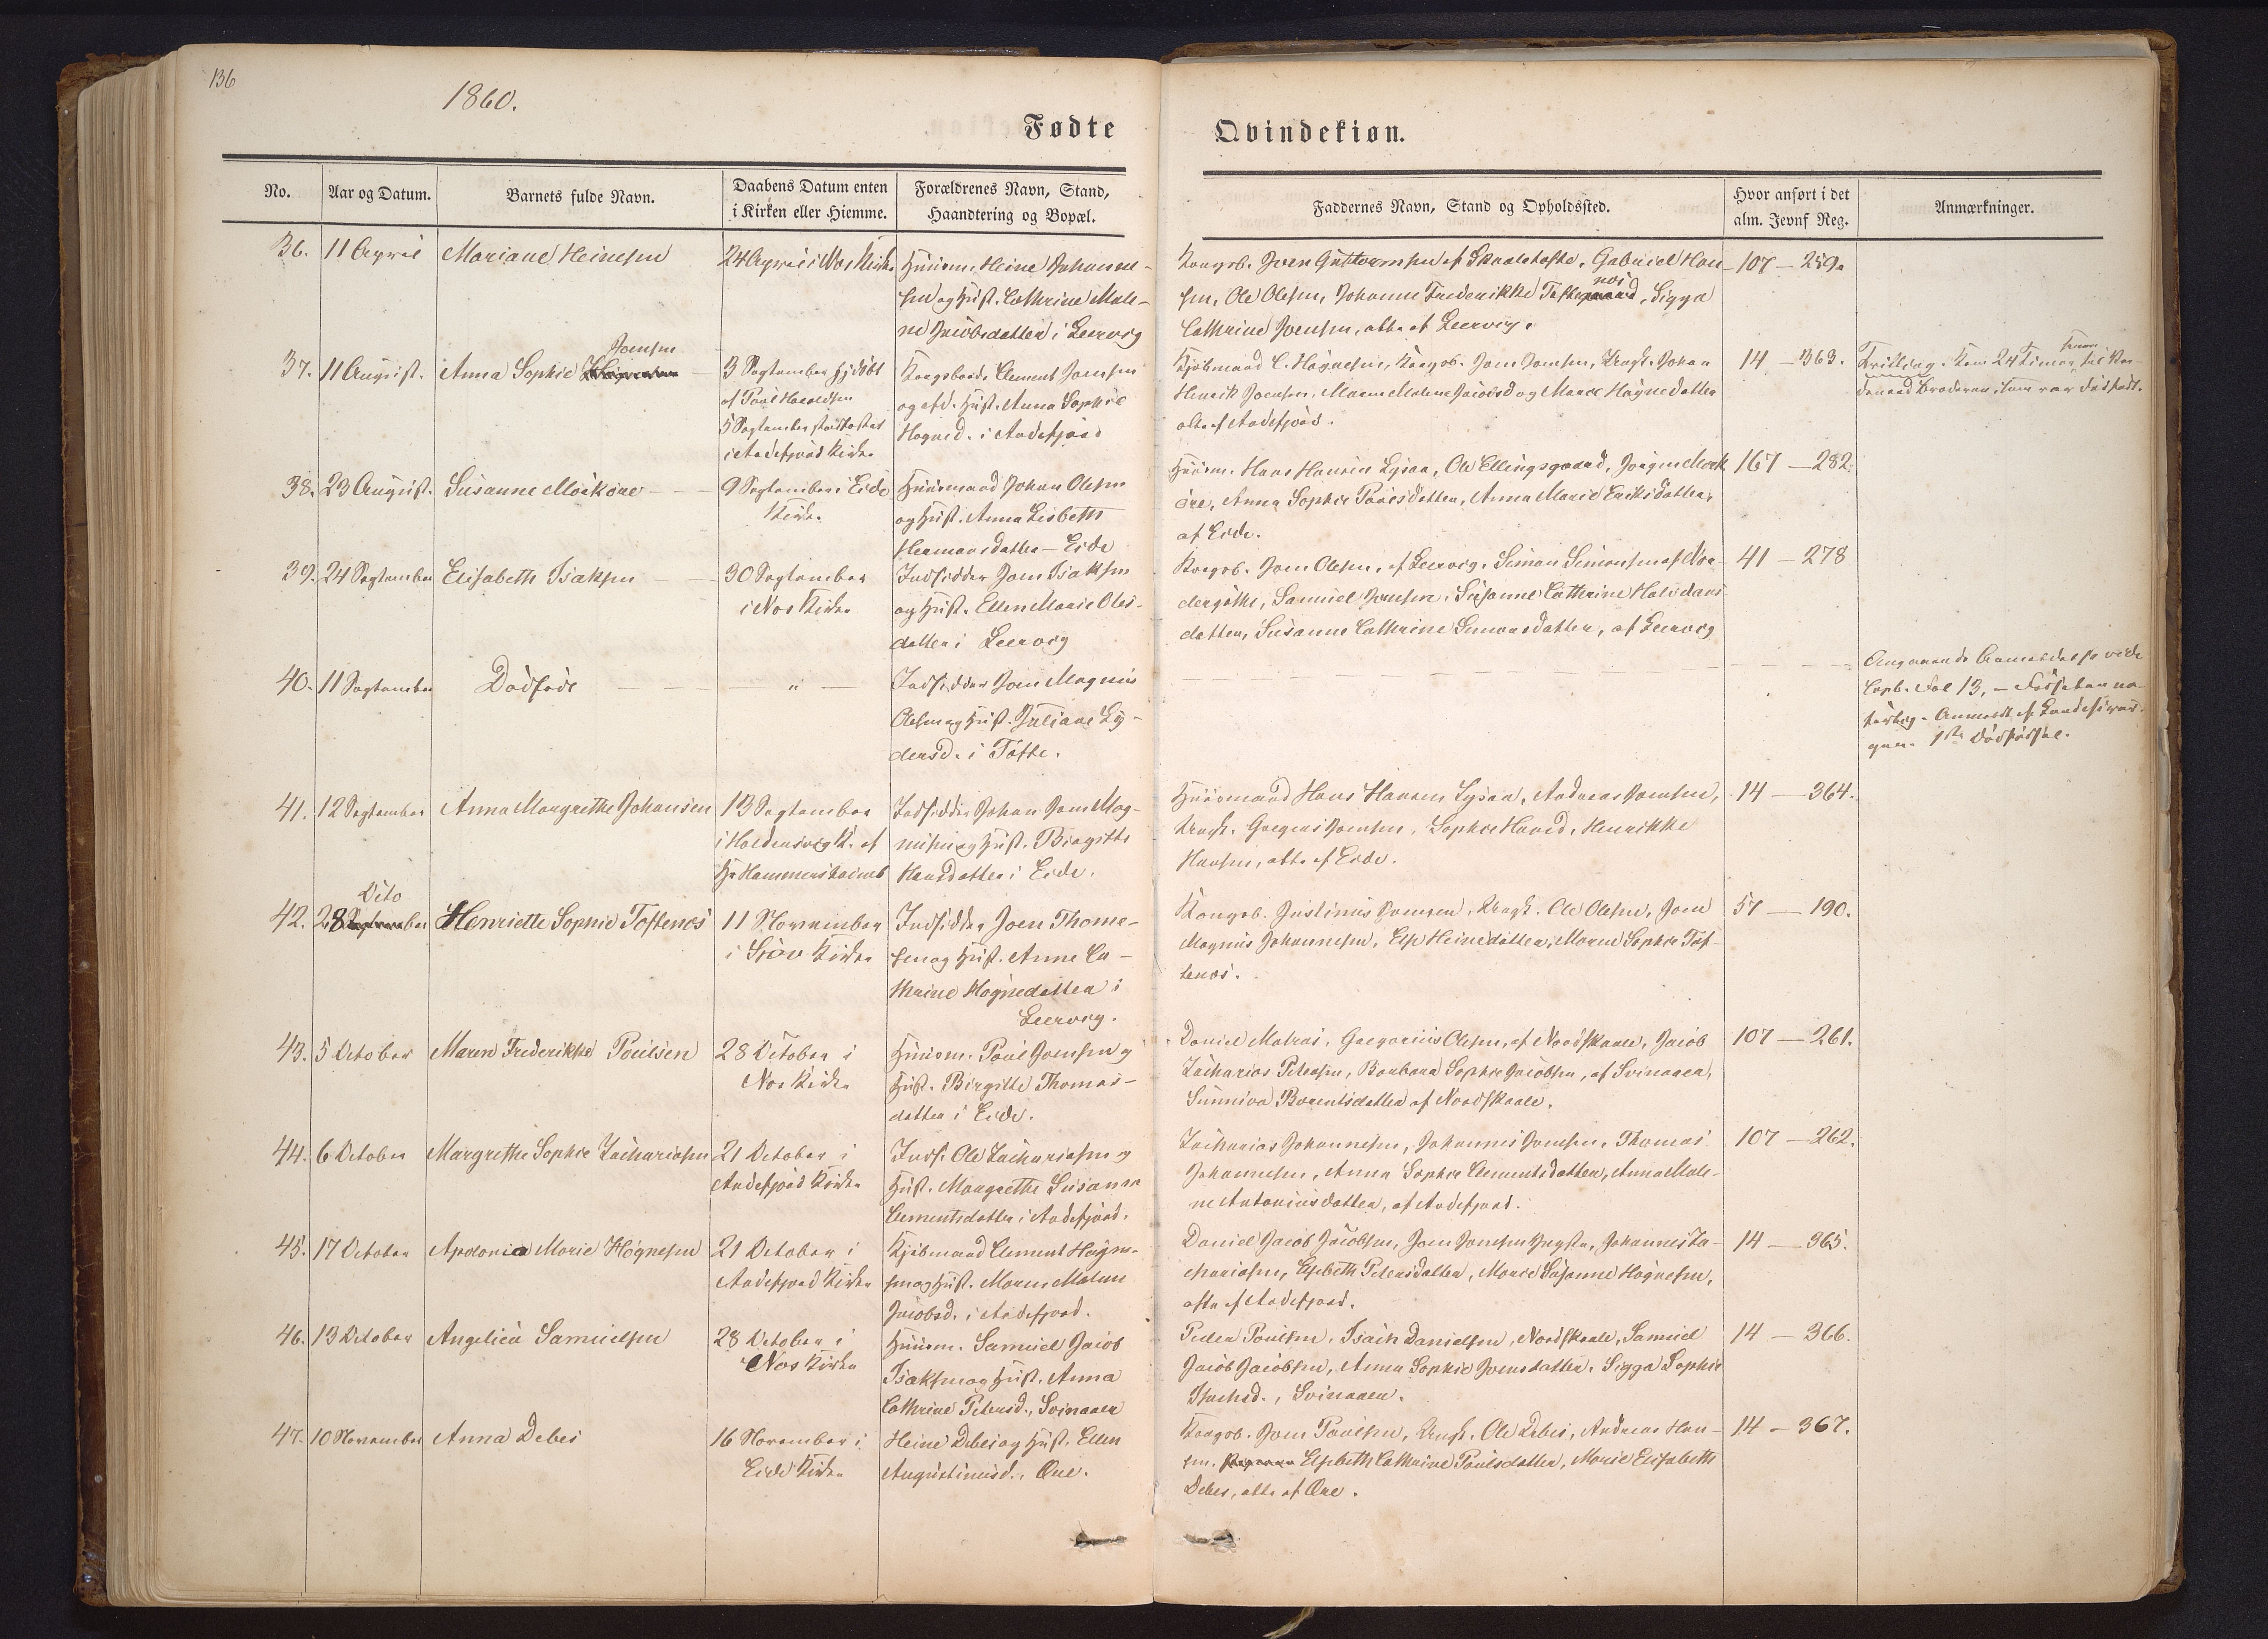 136
1860.
Fødte
Qvindekiøn.
No.
Aar og Datum.
Barnets fulde Navn.
Daabens Datum enten
i Kirken eller Hiemme.
Forældrenes Navn, Stand,
Haandtering og Bopæl.
Faddernes Navn, Stand og Opholdssted.
Hvor anført i det
alm. Jevnf Reg.
Anmærkninger.
36.
11 April
Mariane Heinesen
24 April i Næs Kirke
Huusm. Heine Johanne-
sen og Hust. Cathrine Male-
ne Jacobsdatter i Leervig
Kongsb. Joen Guttormsen af Skaaletofte, Gabriel Han-
sen, Ole Olesen, Johanne Frederikke Toftenæs, Sigga
Cathrine Joensen, alle af Leervig.
107 — 259.
37.
11 August.
Anna Sophie Joensen
3 September hjdøbt
af Poul Haraldsen
5 September
i Andefjord Kirke
Kongsbonde Clement Joensen
og Hust. Anna Sophie
Hogned. i Andefjord
Kjøbmand C. Høgnesen, Kongsb. Joen Joensen, Ungk. Johan
Henrik Joensen, Maren Malene Jacobsd og Marie Høgnedatter
alle af Andefjord.
14 — 363.
Tvilling. Kom 24 Timer
Broderen, som var dødfødt.
38.
23 August.
Susanne Mørkøre
9 September i Eide
Kirke
Huusmand Johan Olesen
og Hust. Anna Lisbeth
Hermansdatter — Eide
Huusm. Hans Hansen Lysaa, Ole Ellingsgaard, Joen Mørk
øre, Anna Sophie Poulsdatter, Anna Marie Eriksdatter,
af Eide.
167 — 282.
39.
24 September
Elisabeth Isaksen
30 September
i Næs Kirke
Indsidder Joen Isaksen
og Hust. Ellen Marie Oles-
datter i Leervig
Kongsb. Joen Olesen, af Leervig, Simon Simonsen af Nor-
dergøthe, Samuel Joensen, Susanne Cathrine Halvdans
datter, Susanne Cathrine Simonsdatter, af Leervig
41 — 278
40.
11 September
Dødfødt
"
Indsidder Joen Magnus
Olesen og Hust. Juliane Ly-
dersd. i Tofte.
Angaaende Anmeldelse vide
Copb. Fol 13,
1ste Dødfødsel.
41.
12 September
Anna Margrethe Johansen
13 September
i Haldersvig K. af
Hr Hammershaimb
Indsidder Johan Joen Mag-
nusen og Hust. Birgitte
Hansdatter i Eide.
Huusmand Hans Hansen Lysaa, Andreas Joensen,
Ungk. Joensen, Sophie Hansd, Henrikke
Hansen, alle af Eide.
14 — 364.
42.
Octo
28 ber
Henriette Sophie Toftenæs
11 November
i Siov Kirke
Indsidder Joen Thome-
sen og Hust. Anne Ca-
thrine Høgnedatter i
Leervig.
Kongsb. Justinus Joensen, Ungk. Ole Olesen, Joen
Magnus Johannesen, Else Heinedatter, Maren Sophie Tof-
tenæs.
57 — 190.
43.
5 October
Maren Frederikke Poulsen
28 October i
Næs Kirke
Huusm. Poul Joensen og
Hust. Birgitte Thomas-
datter i Eide.
Daniel Matras, Gregorius Olesen, af Nordskaale, Jacob
Zacharias Petersen, Barbara Sophie Jacobsen, af Svinaaer,
Sunniva Berentsdatter af Nordskaale.
107 — 261.
44.
6 October
Margrethe Sophie Zachariasen
21 October i
Andefjord Kirke
Inds. Ole Zachariasen og
Hust. Margrethe Susanne
Clementsdatter i Andefjord.
Zacharias Johannesen, Johannes Joensen, Thomas
Johannesen, Anna Sophie Clementsdatter, Anna Male-
ne Antoniusdatter, af Andefjord.
107 — 262.
45.
17 October
Apdonia Marie Høgnesen
21 October i
Andefjord Kirke
Kjøbmand Clement Høgne-
sen og Hust. Maren Malene
Jacobsd. i Andefjord.
Daniel Jacob Jacobsen, Joen Joensen Yngste, Johannes Za-
chariasen, Elsebeth Petersdatter, Marie Susanne Høgnesen,
alle af Andefjord.
14 — 365.
46.
13 October
Angelica Samuelsen
28 October i
Næs Kirke
Huusm. Samuel Jacob
Isaksen og Hust. Anna
Cathrine Petersd., Svinaaer
Peder Poulsen, Isach Danielsen, Nordskaale, Samuel
Jacob Jacobsen, Anna Sophie Joensdatter, Sigga Sophie
Isachsd., Svinaaer.
14 — 366.
47.
10 November
Anna Debes
16 November i
Eide Kirke
Heine Debes og Hust. Ellen
Augustinusd., Øre.
Kongsb. Joen Poulsen, Ungk. Ole Debes, Andreas Han-
sen. Elsebeth Cathrine Poulsdatter, Marie Elisabeth
Debes, alle af Øre.
14 — 367.